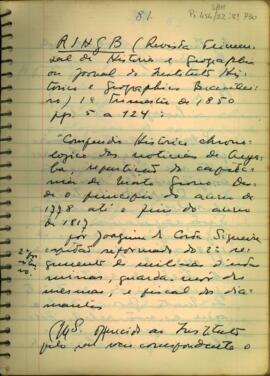 81.
RIHGB (Revista Trimen-
sal de Historia e Geographia
ou Jornal do Instituto His-
torico e Geographico Brasilei-
ro) 1º trimestre de 1850
pp. 5 a 124:
"Compendio Historico chrono-
logico das noticias de Cuya-
bá, repartição da capita-
nia de Mato Grosso. Des-
de o principio do anno de
1778 até o fim do anno
de 1817
por Joaquim da Costa Siqueira
capitão reformado do 2º re-
gimento de milicia d'esta
minas, guarda-mor das
mesmas, e fiscal dos dia-
mantes
(MS. offerecido ao Instituto
pelo seu socio correspondente o